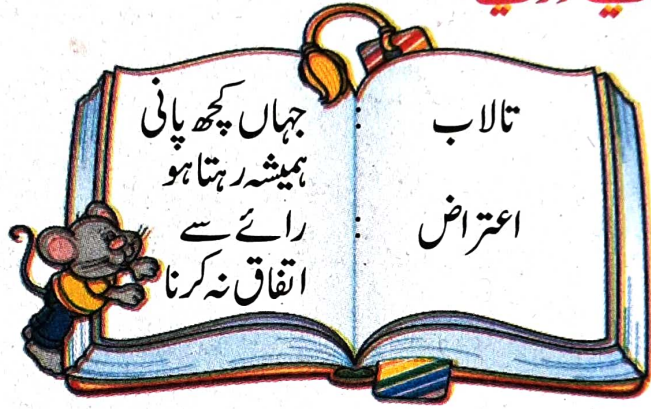 تالاب : جہاں کچھ پانی
ہمیشہ رہتا ہو
اعتراض : رائے سے
اتفاق نہ کرنا